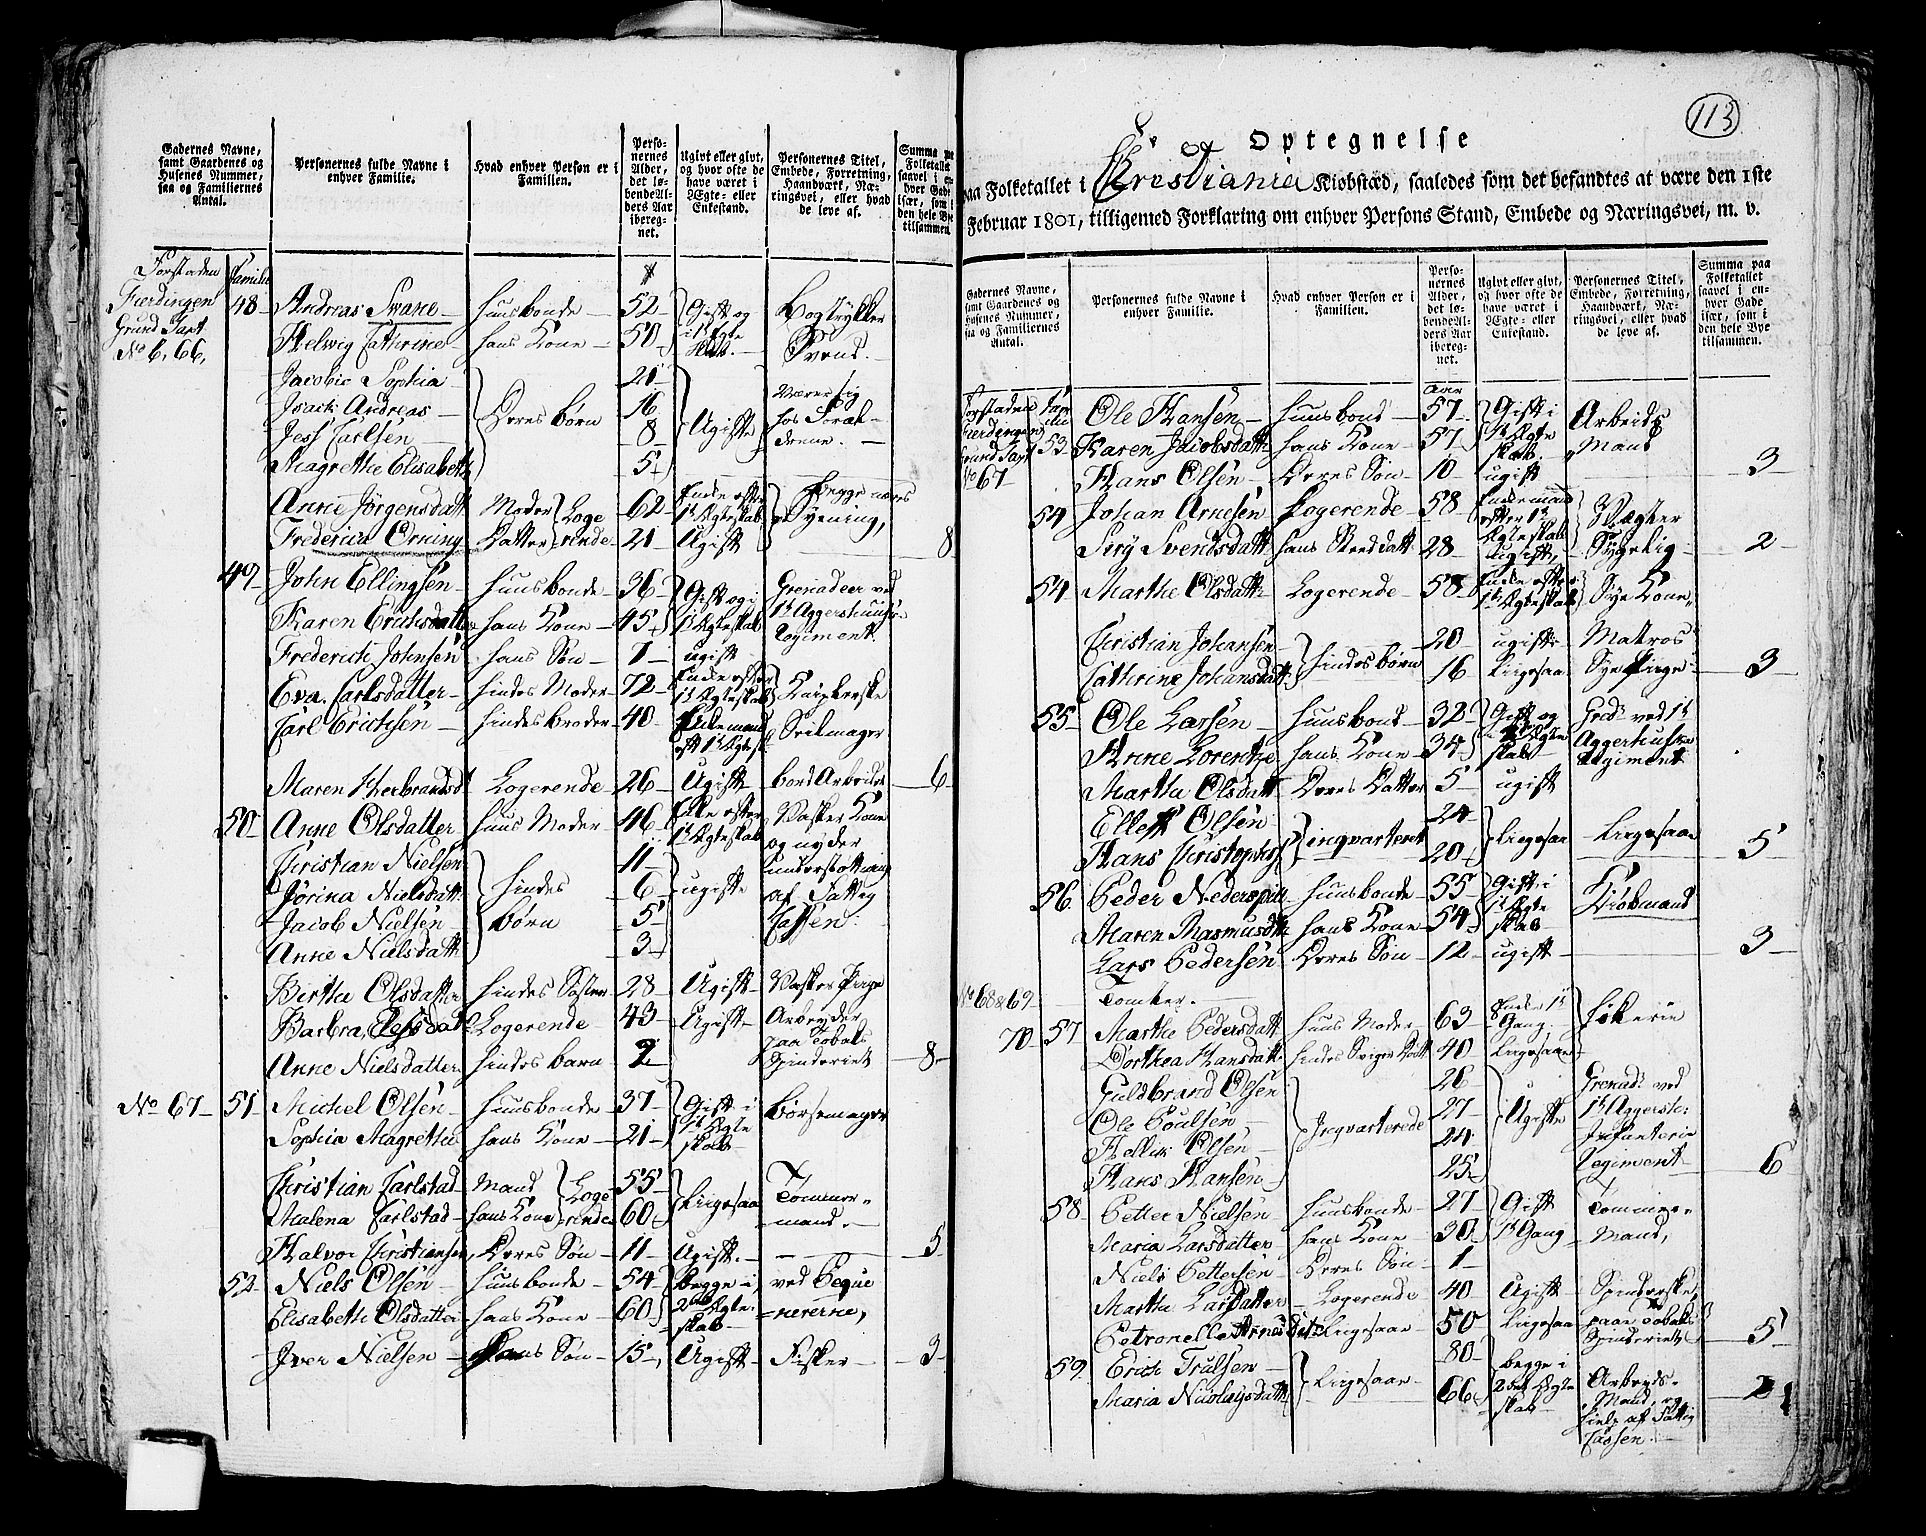 Gadernes Navne, samt Gaardenes og Husenes Nummer, saa og Familiernes Antal.
Personernes fulde Navne i enhver Familie.
Hvad enhver Person er i Familien.
Personernes Alder, det løbende Alders Aar iberegnet.
Ugivt eller givt, og hvor ofte de have været i Ægte- eller Enkestand.
Personernes Titel, Embede, Forretning, Haandværk, Næringsvei, eller hvad de leve af.
Summa paa Folketallet saavel i enhver Gade især, som i den hele Bye tilsammen.
Forstaden Fierdingen Grund Tart No 6, 66,
Familie
48 Andreas Swane Huusbonde 52 Gift og i 1t Ægte skab Bogtrykker Svend
Helwig Cathrine hans Kone 50
Jacobie Sophia Deres børn 21 Ugifte
Isach Andreas 16
Jess Carlsen 8
Magrethe Elisabeth 5
Anne Jörgensdatt Moder Logerende 62 Enke efter 1t Ægteskab Syening,
Frederica Orning Datter 21 Ugift 8
49 John Ellingsen Huusbonde 36 Gift og i 1t Ægteskab Grenadeer ved 1t Aggershuus Regiment
Karen Erichsdatter hans Kone 45
Frederich Johnsen hans Søn 7 ugift
Eva Carlsdatter hindes Moder 72 Enke efter 1t Ægteskab
Carl Erichsen hindes broder 40 Enkemand eft 1t Ægtesk
Maren Herbrandsd Logerende 26 Ugift 6
50 Anne Olsdatter Huus Moder 46 Enke efter 1t Ægteskab Vasker Kone og nyder understøttning af Fattig Cassen
Christian Nielsen hindes børn 11 ugifte
Jörina Nielsdatt 6
Jacob Nielsen 5
Anne Nielsdatt 3
Birthe Olsdatter hindes Søster 28 Ugift Vasker Pige
Barbra Logerende 43 Ugift Arbeyder paa Tobaks Spinderiet
Anne Nielsdatter hindes barn 2 8
No 67 51 Michel Olsen Huusbonde 37 Gift i 1t Ægte skab Børsemager
Sophia Magretha hans Kone 21
Christian Carlstad Mand Logerende 55 Ligesaa Tømmermand
Malena Carlstad hans Kone 60
Halvor Christiansen Deres Søn 11 Ugift 5
52 Niels Olsen Huusbonde 54 begge i 2det Ægteskab ved
Elisabeth Olsdatter hans Kone 60
Iver Nielsen Hans Søn 15 Ugift Fisker 3
113
Optegnelse
paa Folketallet i Christiania Kiøbstæd, saaledes som det befandtes at være den 1ste
Februar 1801, tilligemed Forklaring om enhver Persons Stand, Embede og Næringsvei, m. v.
Gadernes Navne, samt Gaardenes og Husenes Nummer, saa og Familiernes Antal.
Personernes fulde Navne i enhver Familie.
Hvad enhver Person er i Familien.
Personernes Alder, det løbende Alders Aar iberegnet.
Ugivt eller givt, og hvor ofte de have været i Ægte- eller Enkestand.
Personernes Titel, Embede, Forretning, Haandværk, Næringsvei, eller hvad de leve af.
Summa paa Folketallet saavel i enhver Gade især, som i den hele Bye tilsammen.
Forstaden Fierdingen Grund Tart No 67
Familie
53 Ole Hansen Huusbond 57 Gift i 1t Ægte skab Arbeids Mand
Karen Jacobsdatt hans Kone 57
Hans Olsen Deres Søn 10 ugift 3
54 Johan Arnesen Logerende 58 Enkemand efter 1t Ægteskab Vægter
Siry Svendsdatt hans Sted datt 28 ugift Sygelig 2
54 Marthe Olsdatt Logerende 58 Enke efter 1t Ægteskab Sye Kone
Christian Johansen hindes børn 20 ugift Matros
Cathrine Johansdatt 16 Ligesaa Sye Pige 3
55 Ole Larsen Huusbond 32 Gift og i 1t Ægte skab Gred ved 1t Aggerhuske Regiment
Anne Lorentze hans Kone 34
Martha Olsdatt Deres Datter 5 ugift
Elleff Olsen inqvarteret 24 Ligesaa Ligesaa
Hans Christophers 20 5
56 Peder Nederspill Huusbonde 55 Gift i 1t Ægte skab Kiøbmand
Maren Rasmusdtt hans Kone 54
Lars Pedersen Deres Søn 12 ugift 3
No 68 & 69 Tomter.
70 57 Marthe Pedersdatt Huus Moder 63 Enke 1t Gang Høkerie
Dorthea Hansdatt hindes Sviger Datt 40 Ligesaa
Guldbrand Olsen Inqvarterede 26 Ugifte Grenad ved 1t Aggersh: Infanterie Regiment
Ole Poulsen 27
Hellik Olsen 24
Hans Hansen 25 6
58 Petter Nielsen Huusbonde 27 Gift 1t Gang Tømmer Mand,
Maria Larsdatter hans Kone 30
Niels Pettersen Deres Søn 1
Martha Larsdatter Logerende 40 Ugift Spinderske paa Tobaks Spinderiet
Petronelle Arnesdatt Ligesaa 50 Ligesaa 5
59 Erich Trulsen Ligesaa 80 begge i 2det Ægte skab Arbeyds Mand, og hielp af Fattig Cassen
Maria Nicolaysdatt 66 2